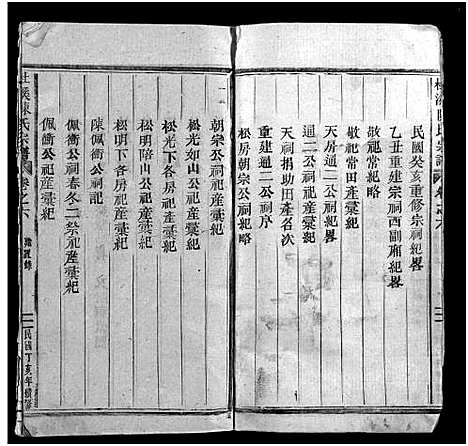 民國癸亥重修宗祠紀畧
乙丑重建宗祠西副厢紀畧
敬祀常紀略
敬祀常田產彙紀
天房通二公祠紀略
通二公祠祀產彙紀
天祠捐助田產名次
重建通二公祠序
松房朝宗公祠紀略
朝宗公祠祀產彙紀
松光如山公祀產彙紀
松光下各房祀產彙紀
松明陪山公祀產彙紀
松明下各房祀產彙紀
陳佩衝公祠記
佩衝公祠春冬二祭祀產彙紀
佩衝公祀產彙紀
陳氏宗譜
卷之六
民國丁亥年續修